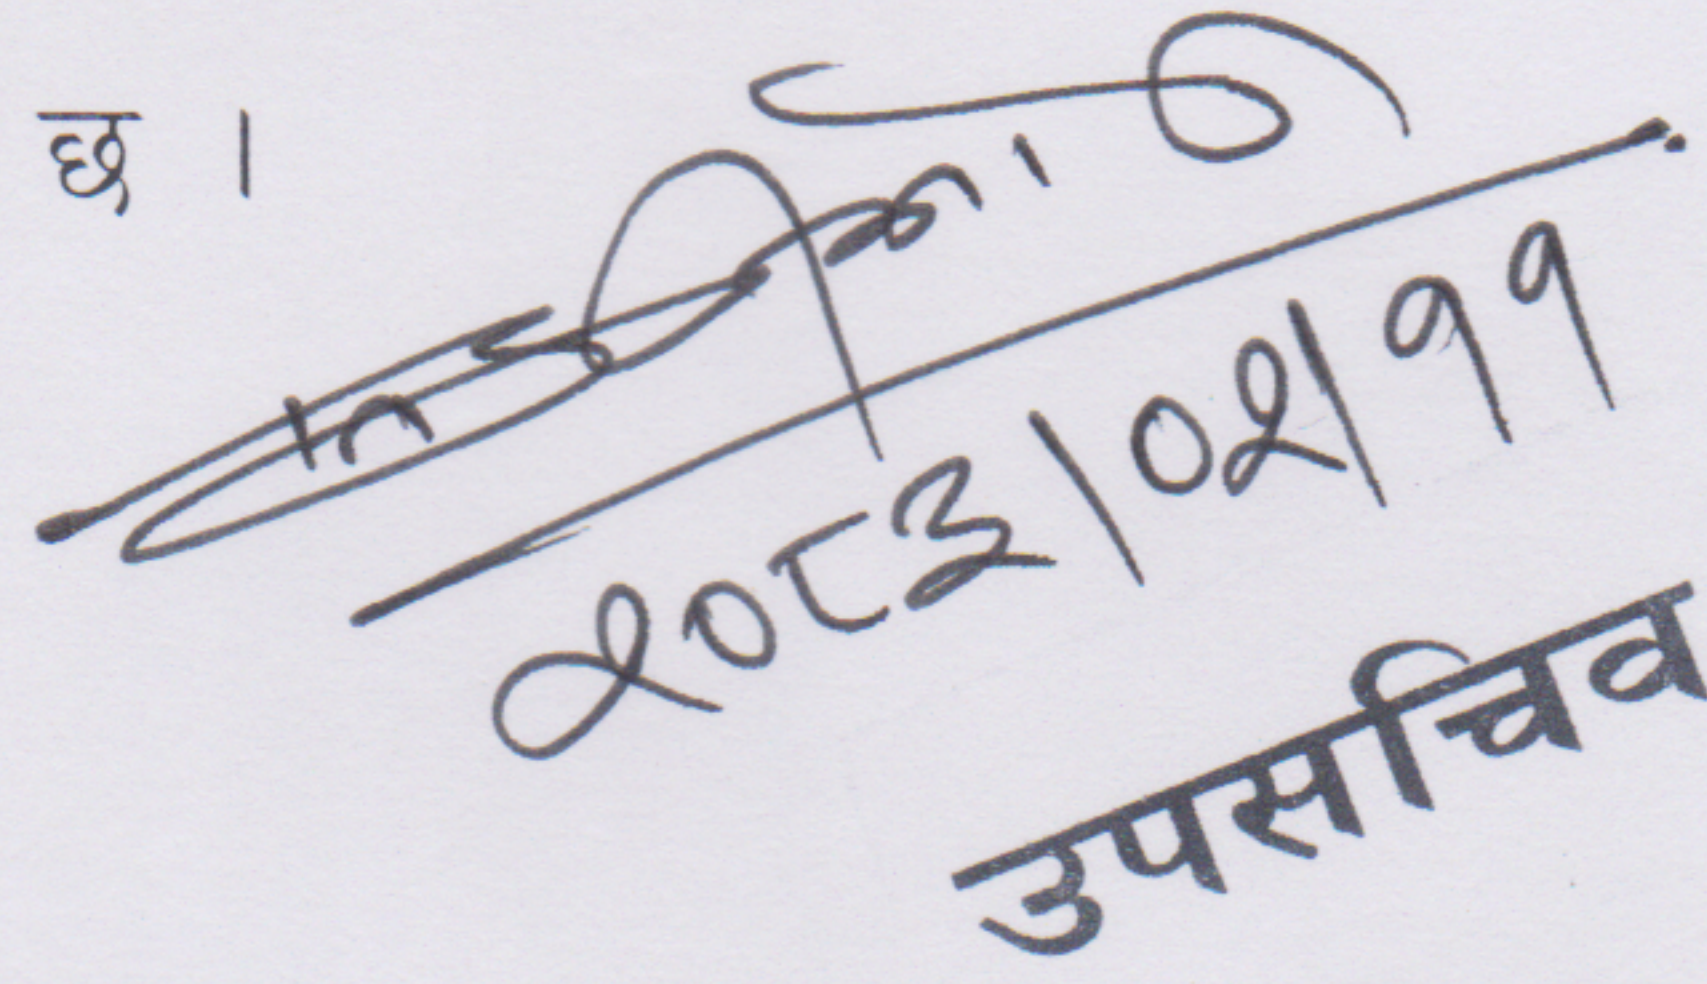 छ ।
२०८३।०२।११
उपसचिव